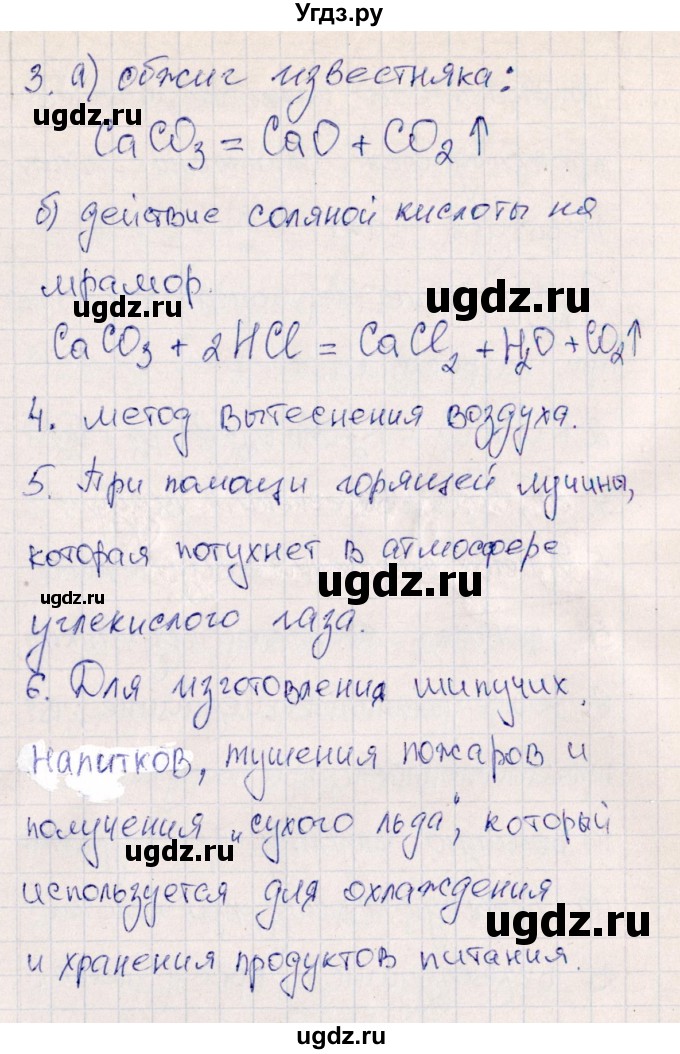 Угдз.ру
3. а) обжиг известняка:
ugdz.ru
CaCO₃ = CaO + CO₂↑
б) действие соляной кислоты на
мрамор.
ugdz.ru
ugdz.ru
CaCO₃ + 2HCl = CaCl₂ + H₂O + CO₂↑
4. метод вытеснения воздуха.
5. При помощи горящей лучины,
ugdz.ru
которая потухнет в атмосфере
ugdz.ru
ugdz.ru
углекислого газа.
6. Для изготовления шипучих
напитков, тушения пожаров и
получения „сухого льда", который
ugdz.ru
используется для охлаждения
ugdz.ru
и хранения продуктов питания.
ugdz.ru